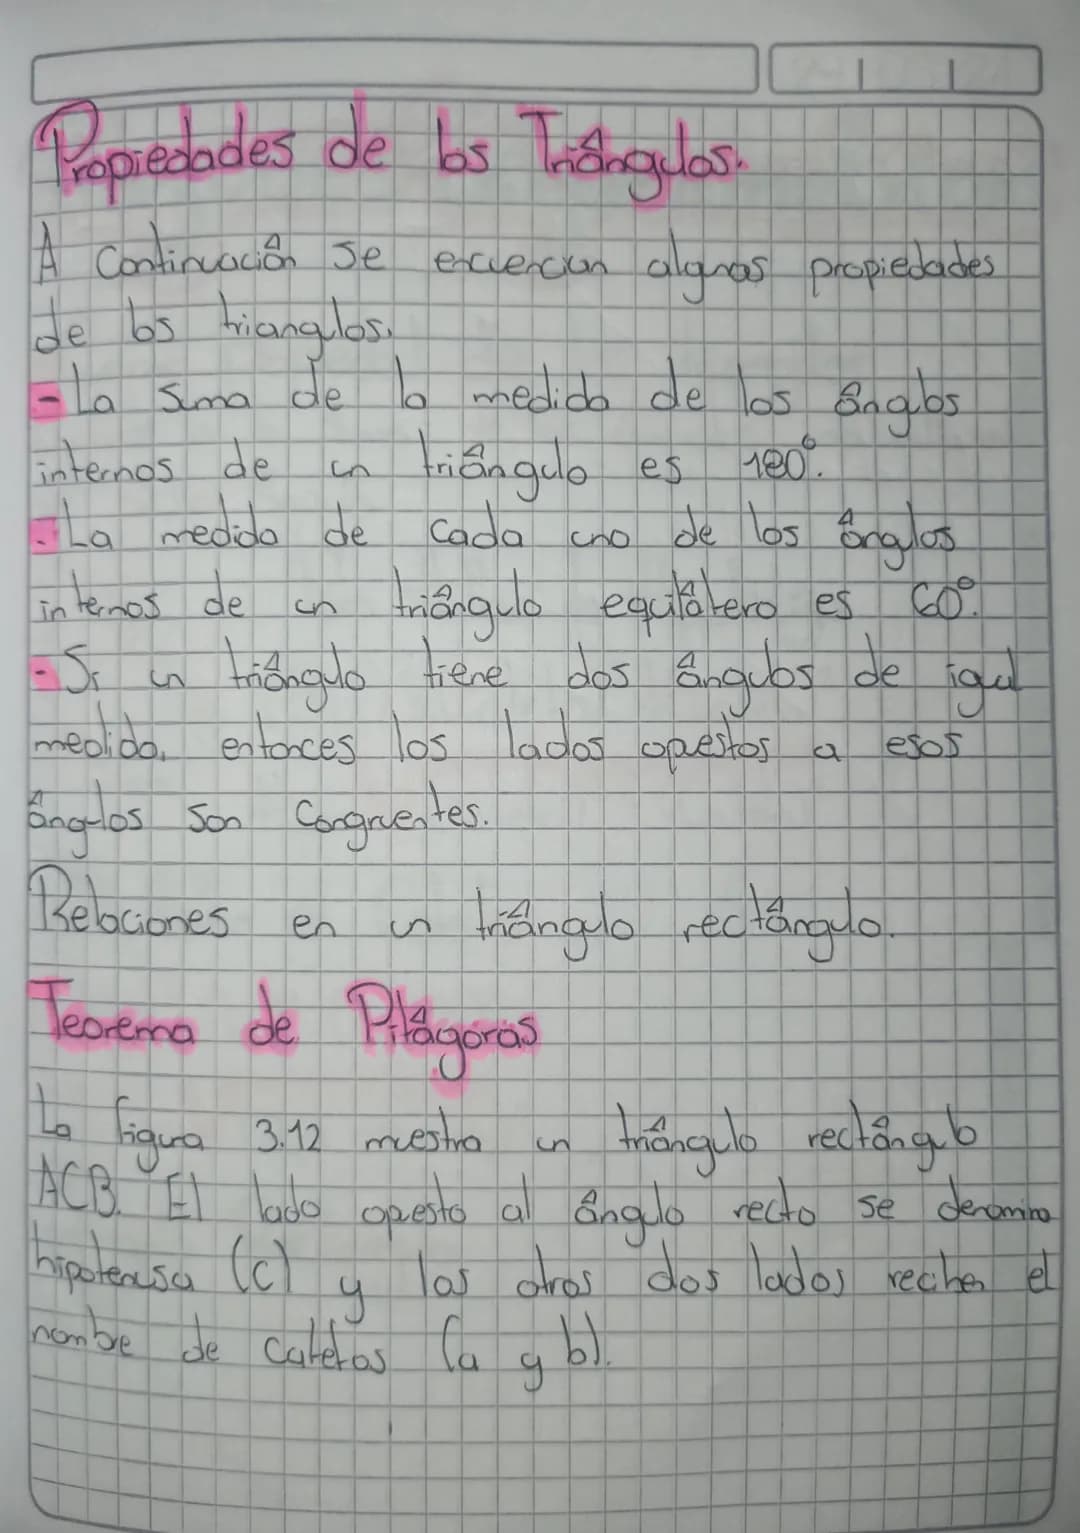 Propiedades de los Triángulos.
A Continuación se encuercian algunas propiedades
de los triangulos.
- La suma de la medida de los ángulos
internos de un triángulo es 180°.
- La medida de cada uno de los ánglos
internos de un triángulo equilátero es 60°.
- Si un triángulo tiene dos ángulos de igual
medida, entonces los lados opuestos a esos
ángulos son Congruentes.
Relaciones en un triángulo rectángulo.
Teorema de Pitágoras
La figura 3.12 muestra un triángulo rectángulo
ACB. El lado opuesto al ángulo recto se denomina
hipotenusa (c) y los otros dos lados reciben el
nombre de catetos (a y b).